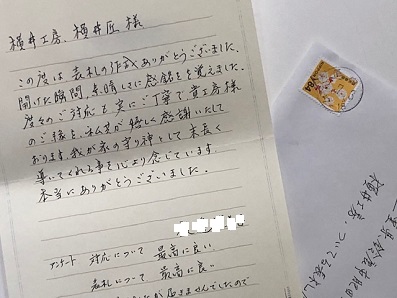 横井工房、横井匠 様
この度は 表札の作成 ありがとうございました。
開けた瞬間、素晴しさに感銘を覚えました。
度々のご対応も 実にご丁寧で 貴工房様
とのご縁を、私共が 嬉しく 感謝いたして
おります。我が家の守り神として 末長く
導いてくれる事を 心より 念じています。
本当に ありがとう ございました。
アンケート 対応について 最高に良い
表札について 最高に良い
横井工房